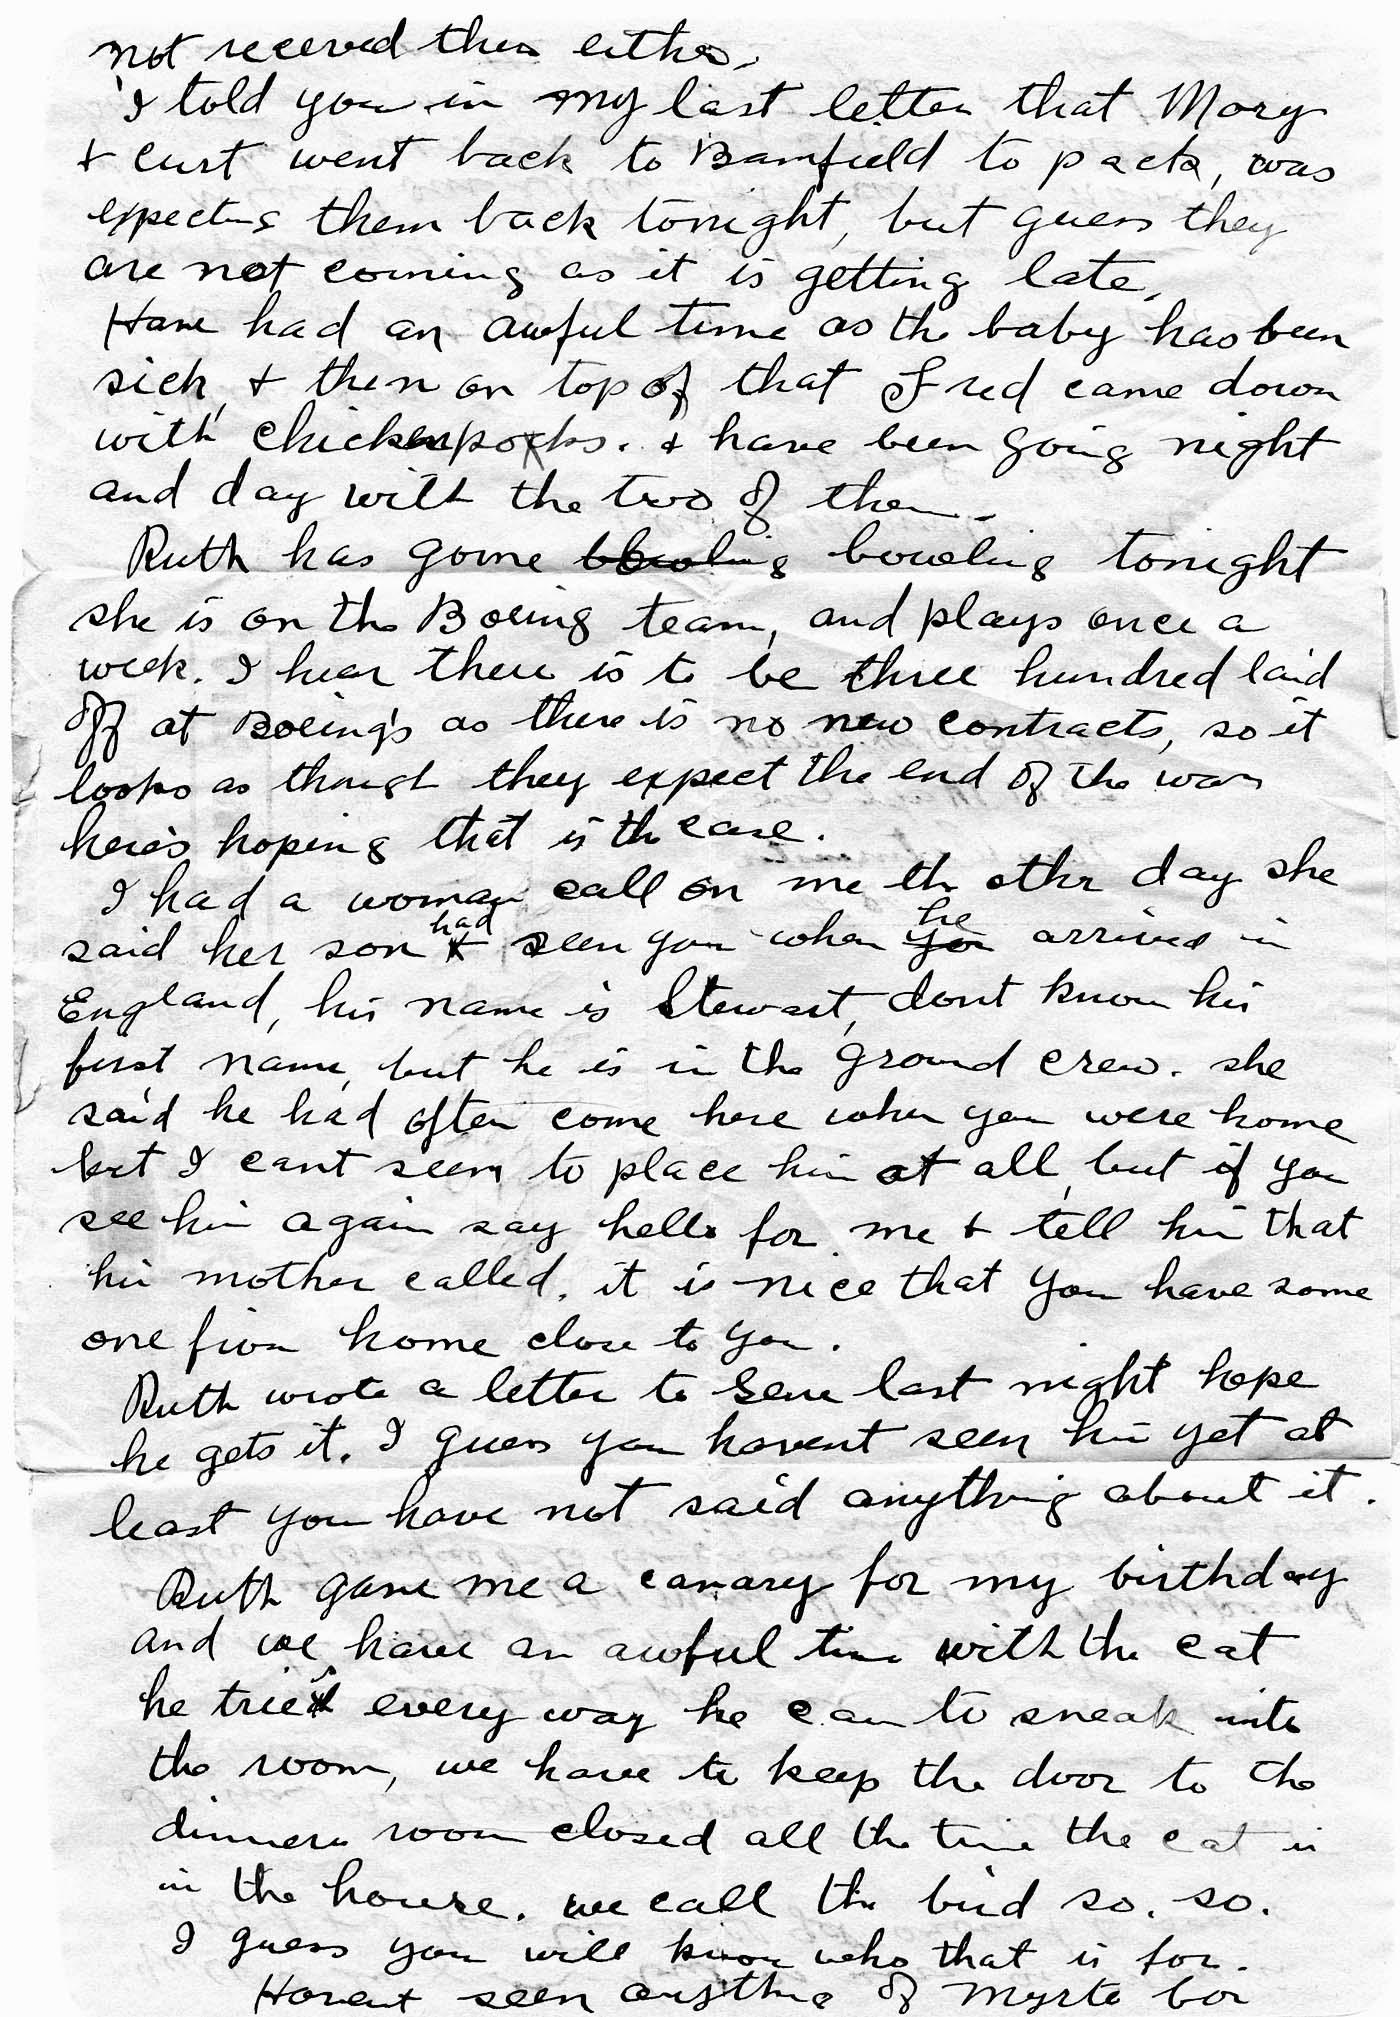 not received them either.
I told you in my last letter that Mary
& Curt went back to Bamfield to pack, was
expecting them back tonight, but guess they
are not coming as it is getting late,
Have had an awful time as the baby has been
sick, & then on top of that Fred came down
with chickenpocks. & have been going night
and day with the two of them.
Ruth has gone bowling bowling tonight
she is on the Boeing team, and plays once a
week. I hear there is to be three hundred laid
off at Boeing's as there is no new contracts, so it
looks as though they expect the end of the war
here's hoping that is the case.
I had a woman call on me the other day she
said her son had seen you when he arrived in
England, his name is Stewart, dont know his
first name, but he is in the ground crew. she
said he had often come here when you were home
but I cant seem to place him at all, but if you
see him again say hello for me & tell him that
his mother called. it is nice that you have some
one from home close to you.
Ruth wrote a letter to Gene last night hope
he gets it. I guess you havent seen him yet at
least you have not said anything about it.
Ruth gave me a canary for my birthday
and we have an awful time with the cat
he tries every way he can to sneak into
the room, we have to keep the door to the
dinnern room closed all the time the cat is
in the house. we call the bird so. so.
I guess you will know who that is for.
Havent seen anything of Myrte